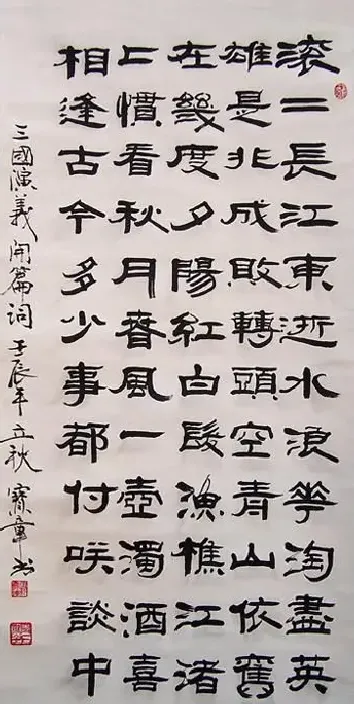 滚二長江東逝水浪花淘盡英
雄是非成敗轉頭空青山依舊
在幾度夕陽紅白髮漁樵江渚
上慣看秋月春風一壺濁酒喜
相逢古今多少事都付咲談中
三國演義開篇词 壬辰年立秋 寶章书